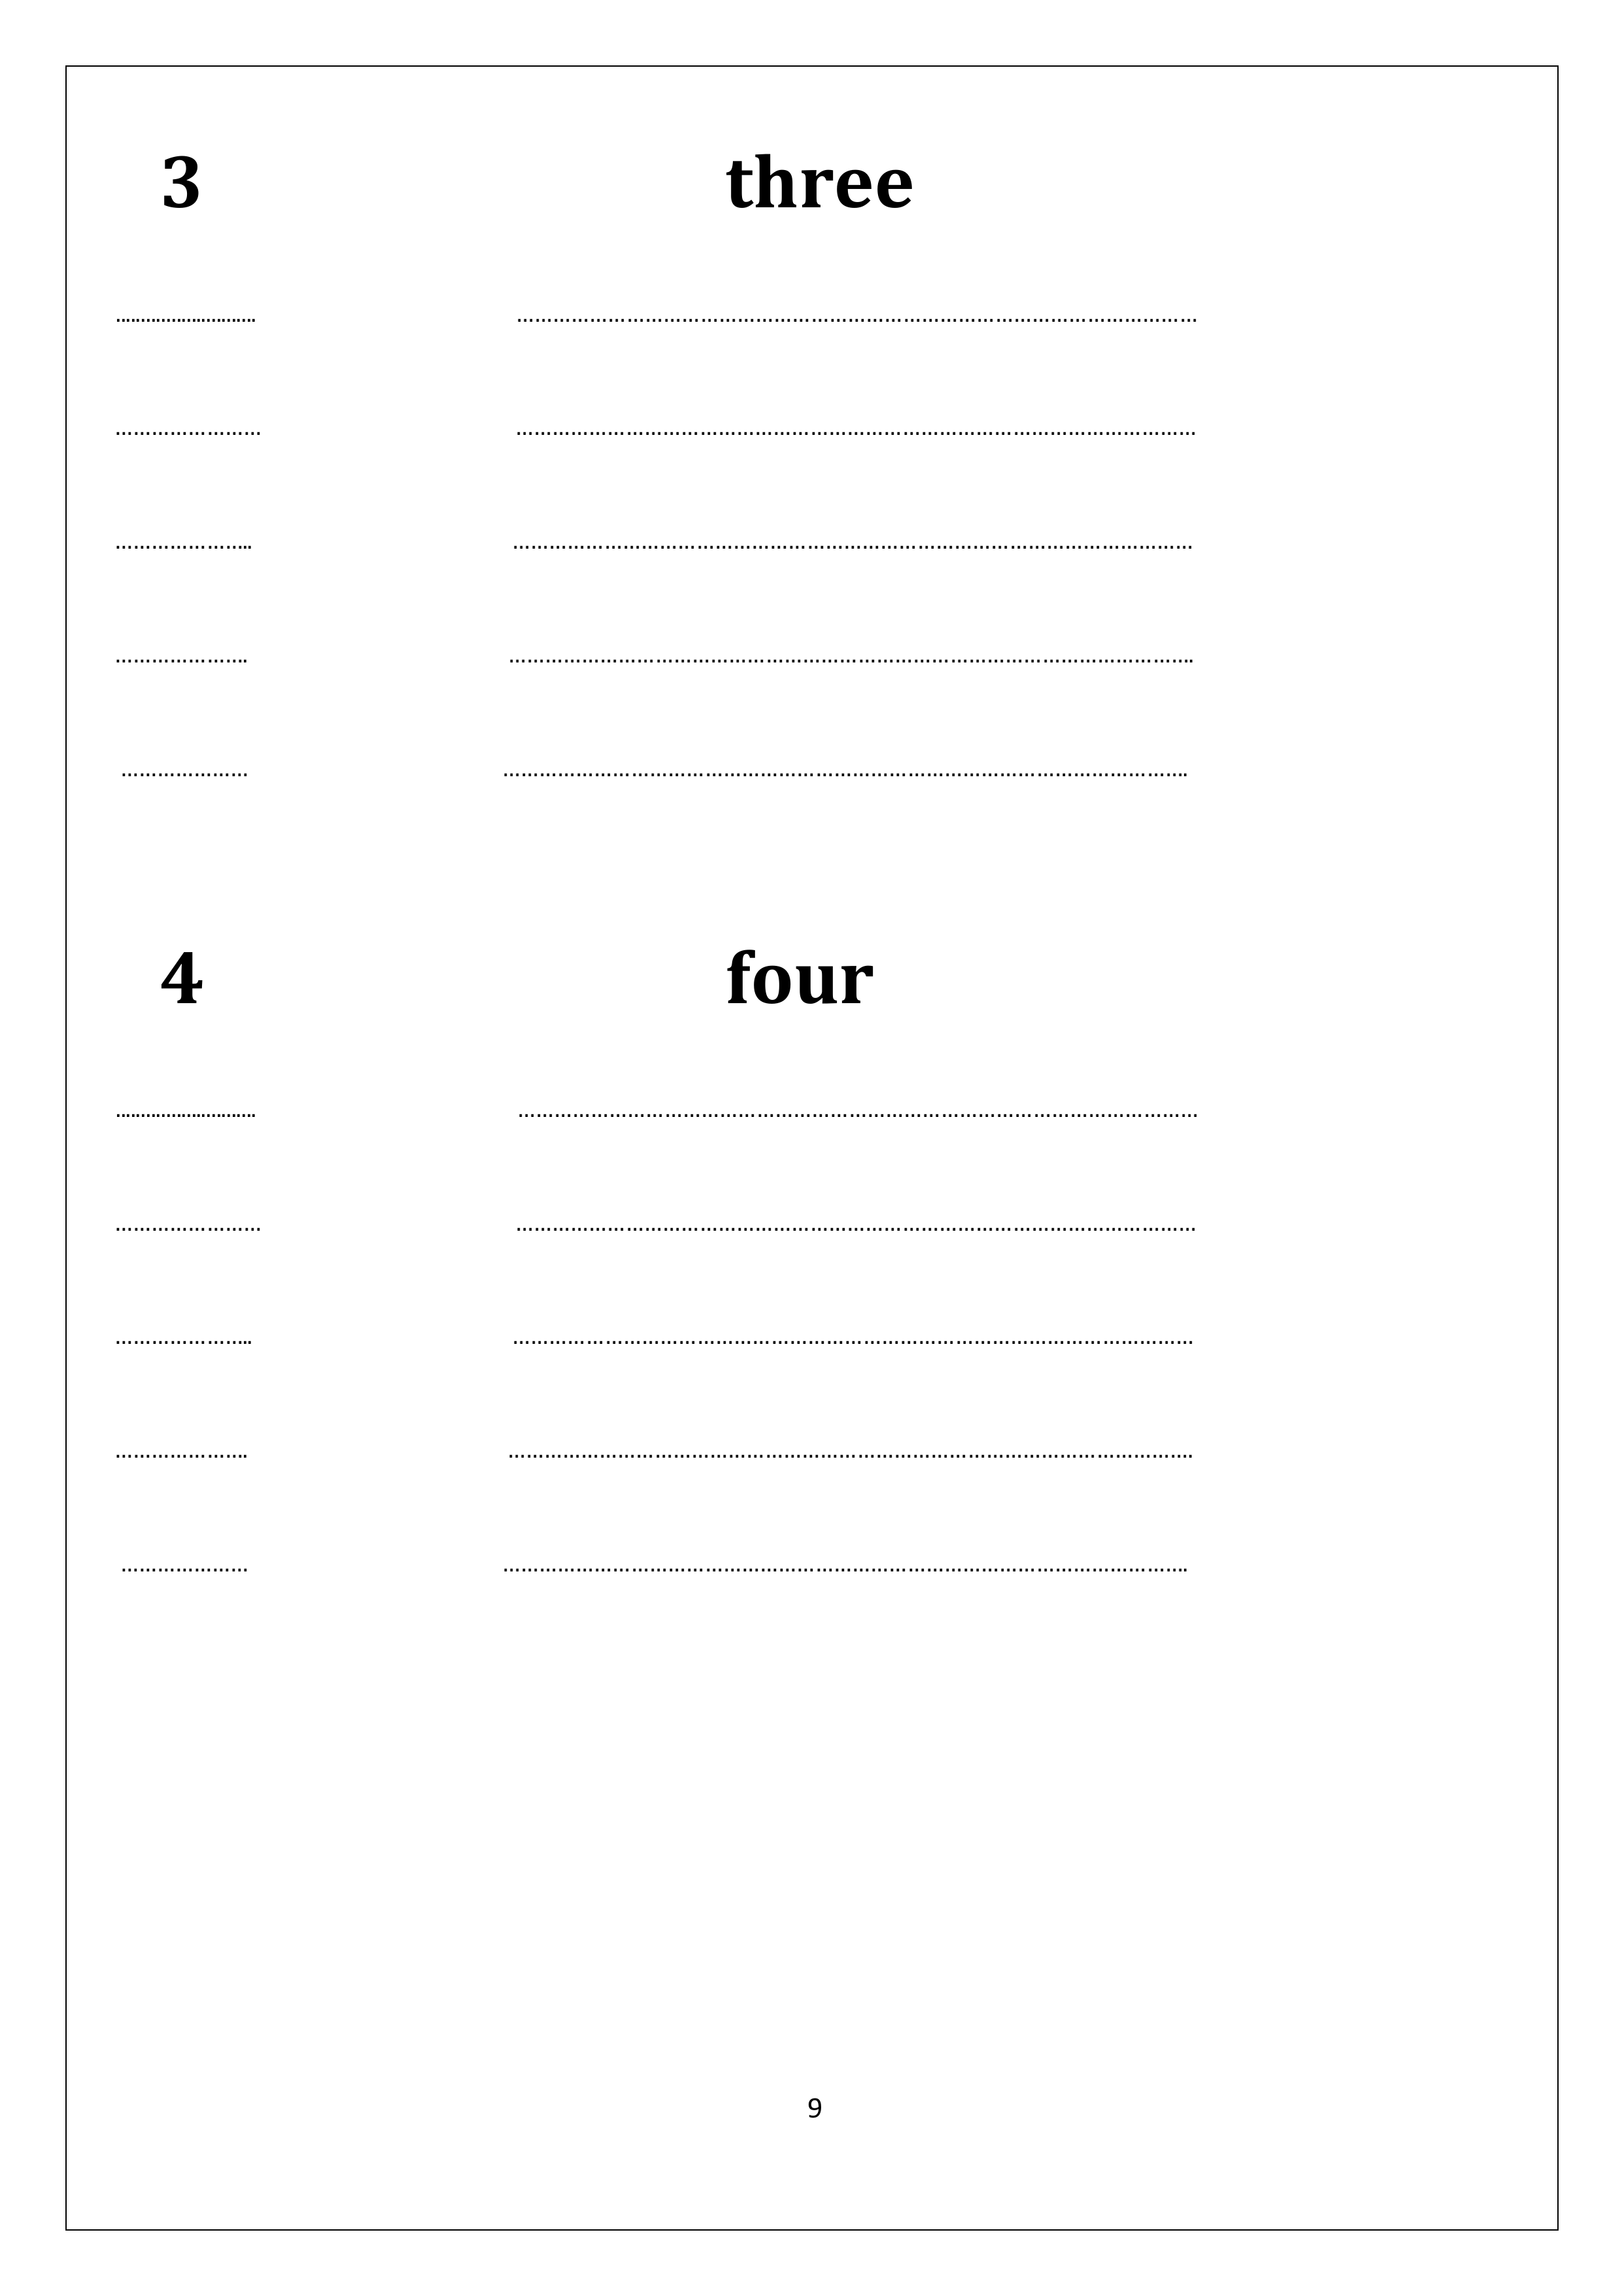 3 three
........................ ……………………………………………………………………………………………………
…………………… ……………………………………………………………………………………………………
………………….. ……………………………………………………………………………………………………
…………………. …………………………………………………………………………………………………….
………………… …………………………………………………………………………………………………….
4 four
........................ ……………………………………………………………………………………………………
…………………… ……………………………………………………………………………………………………
………………….. ……………………………………………………………………………………………………
…………………. …………………………………………………………………………………………………….
………………… …………………………………………………………………………………………………….
9